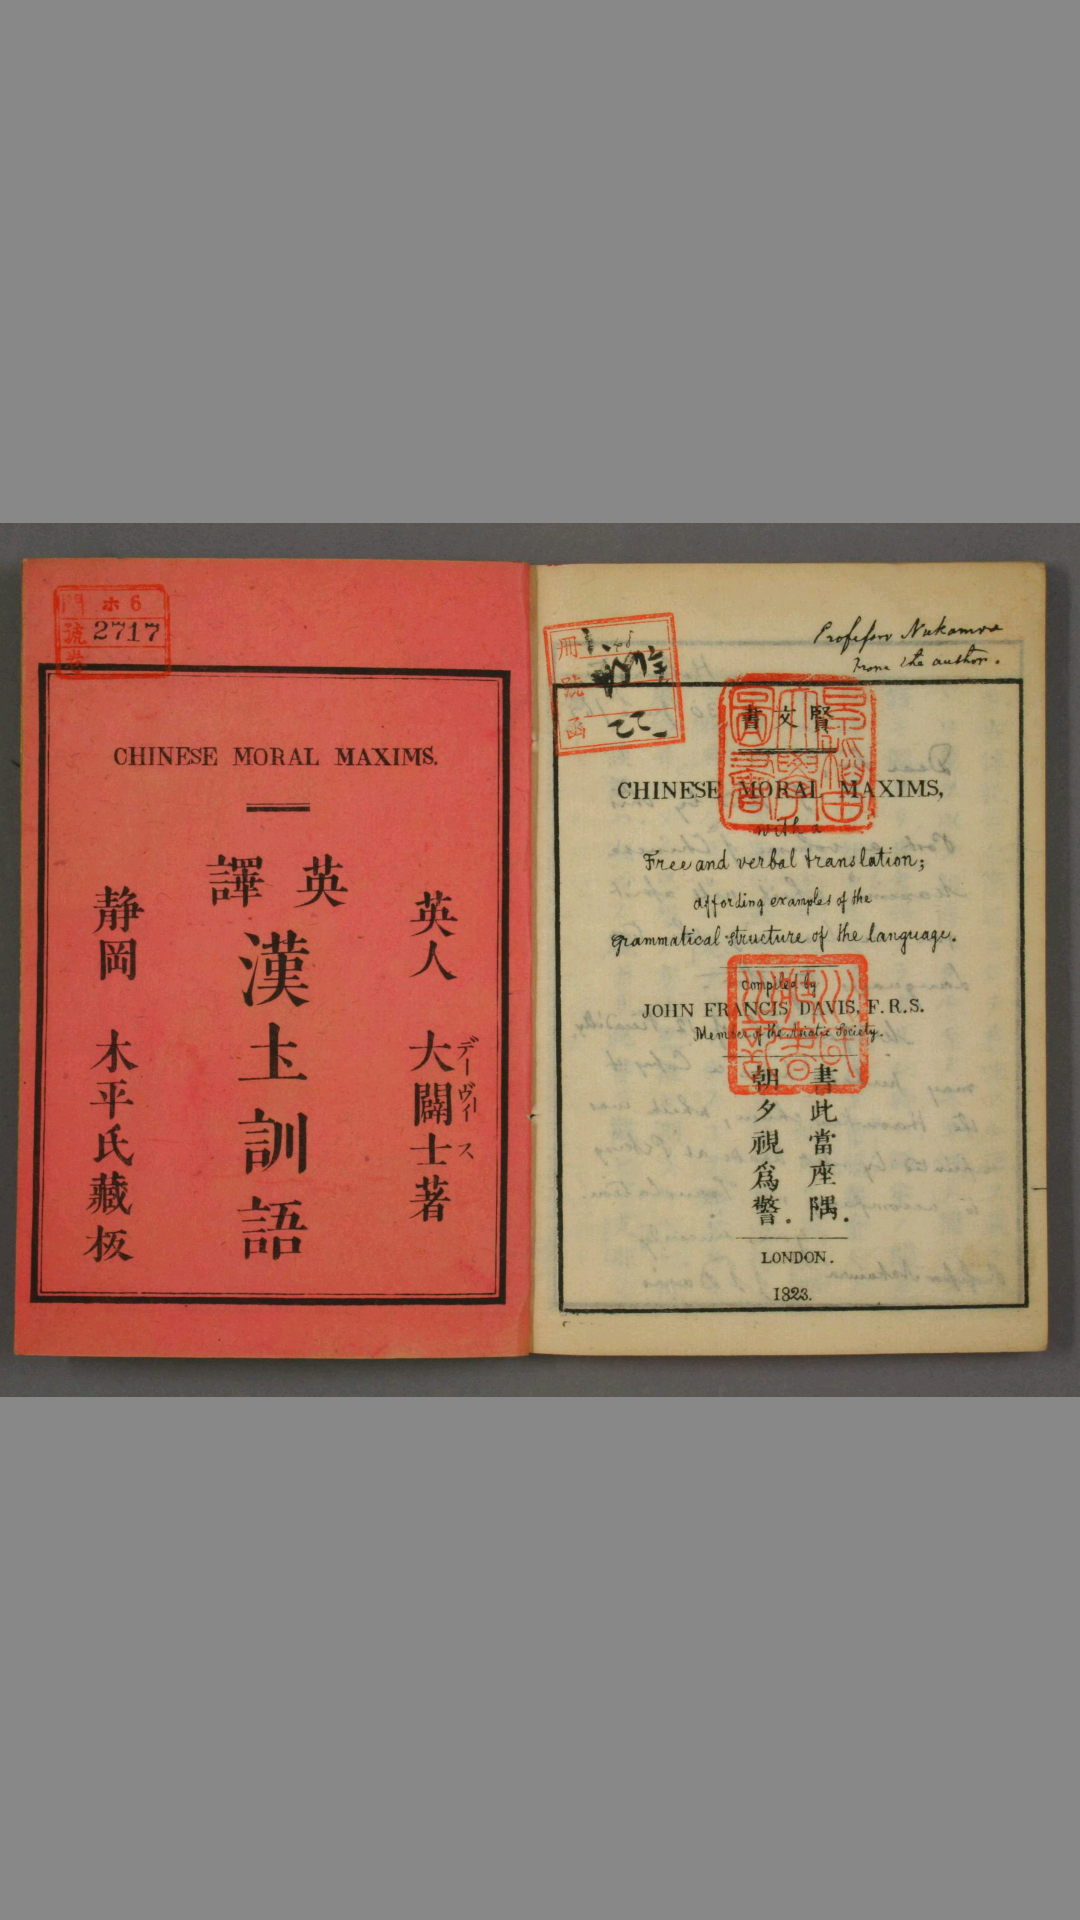 ホ6
門
號 2717
卷
CHINESE MORAL MAXIMS.
英人 大闢士著
デーヴィース
英譯
漢土訓語
静岡 木平氏藏板
冊
號
函
Professor Nukamra
From the author.
賢文書
CHINESE MORAL MAXIMS,
with a
Free and verbal translation;
affording examples of the
grammatical structure of the language.
Compiled by
JOHN FRANCIS DAVIS, F.R.S.
Member of the Asiatic Society.
書此當座隅.
朝夕視爲警.
LONDON.
1823.